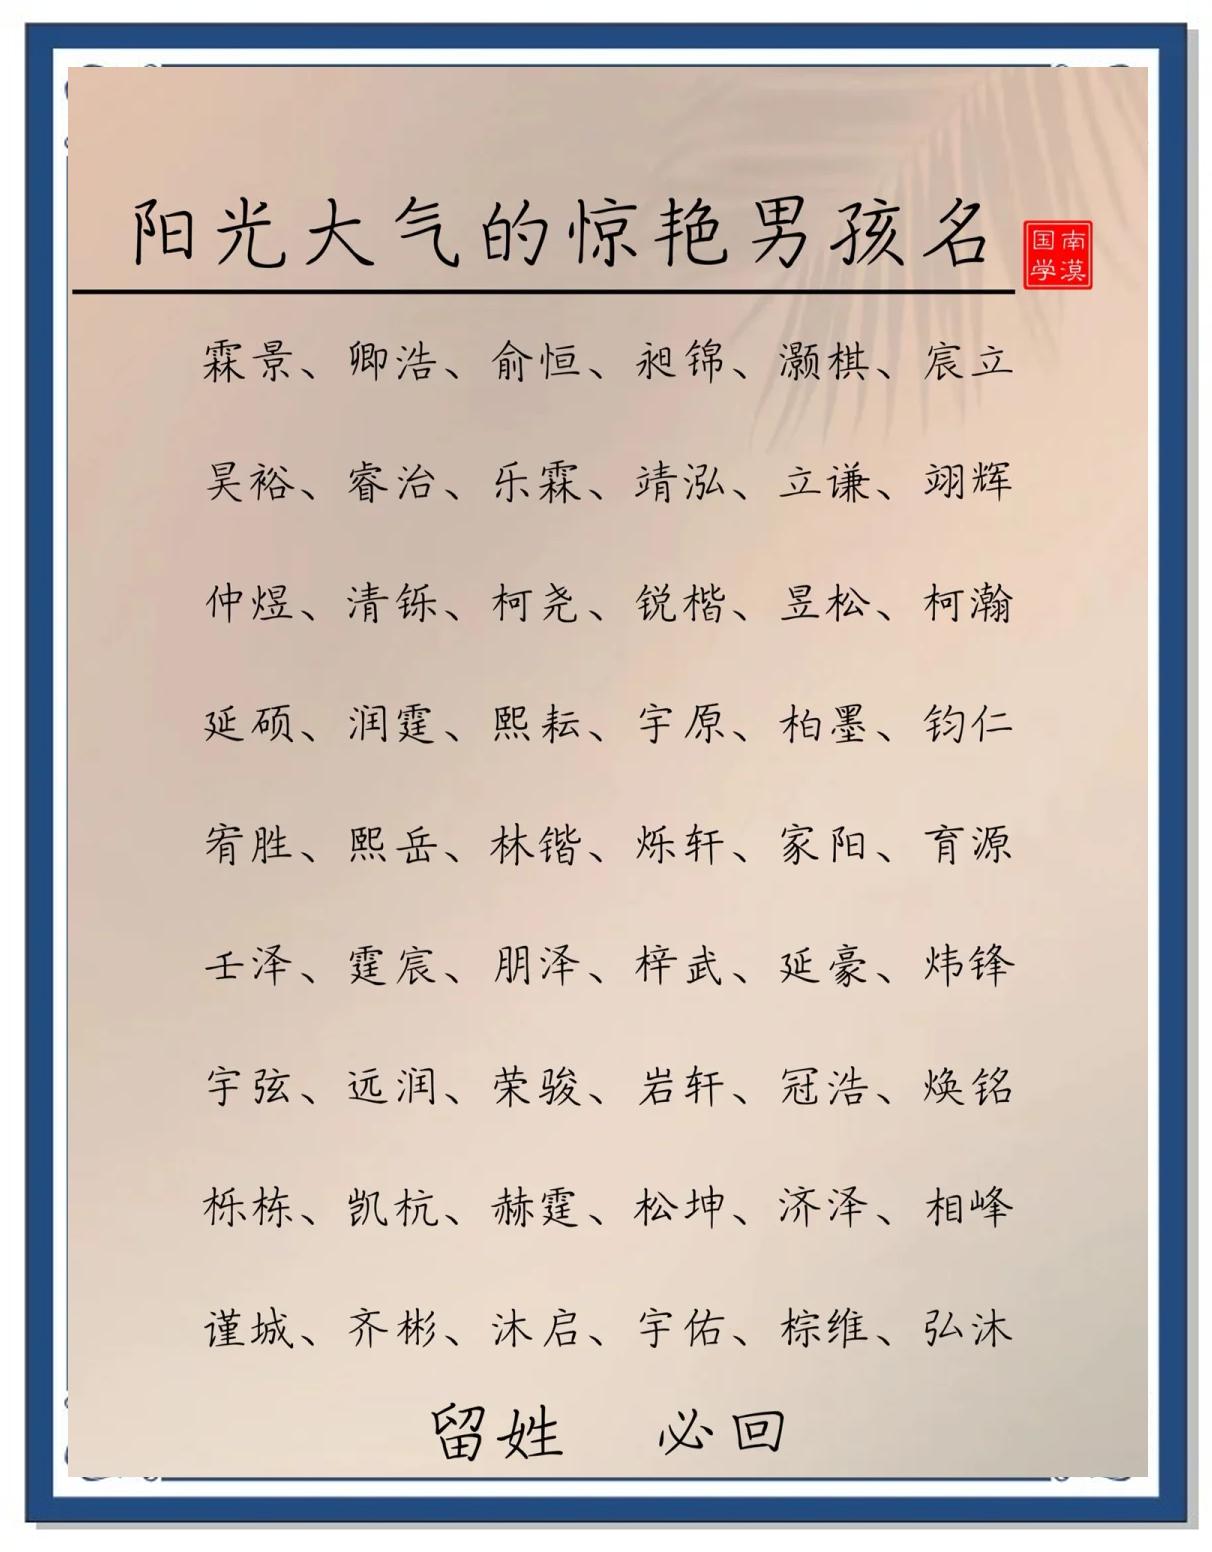 阳光大气的惊艳男孩名
南漠国学
霖景、卿浩、俞恒、昶锦、灏棋、宸立
昊裕、睿治、乐霖、靖泓、立谦、翊辉
仲煜、清铄、柯尧、锐楷、昱松、柯瀚
延硕、润霆、熙耘、宇原、柏墨、钧仁
宥胜、熙岳、林锴、烁轩、家阳、育源
壬泽、霆宸、朋泽、梓武、延豪、炜锋
宇弦、远润、荣骏、岩轩、冠浩、焕铭
栎栋、凯杭、赫霆、松坤、济泽、相峰
谨城、齐彬、沐启、宇佑、棕维、弘沐
留姓 必回